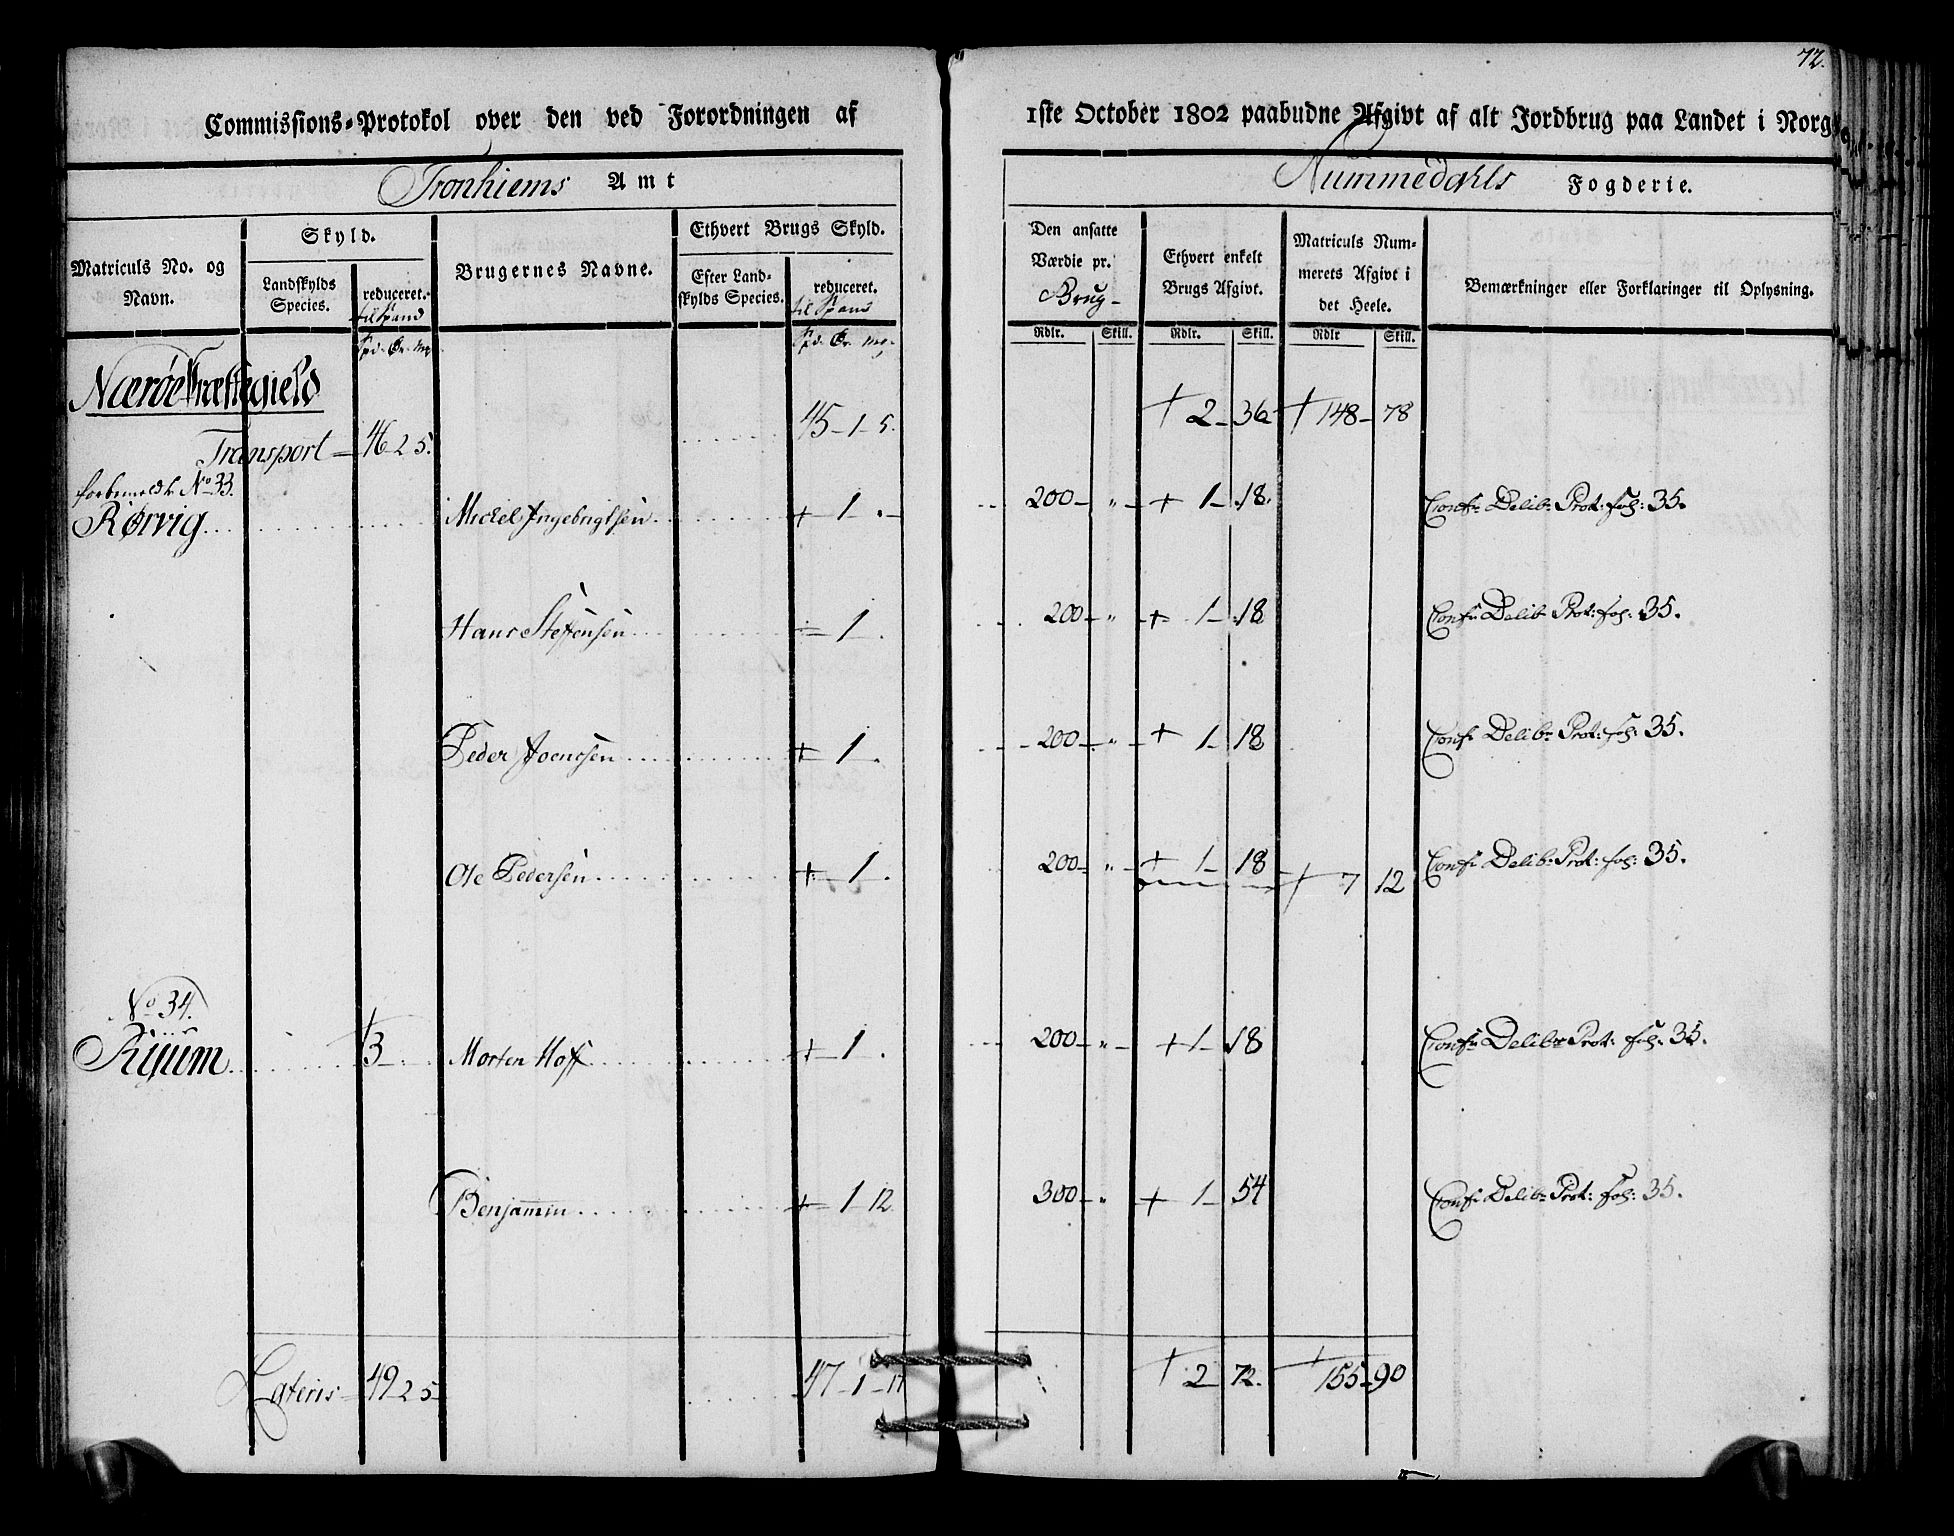 72.
Commissions-Protokol over den ved Forordningen af 1ste October 1802 paabudne Afgivt af alt Jordbrug paa Landet i Norg
Tronhiems Amt Nummedahls Fogderie.
Matriculs No. og Navn.
Skyld.
Landskylds Species.
reduceret. til Spand
Brugernes Navne.
Ethvert Brugs Skyld.
Efter Landskylds Species.
reduceret. til Spand
Den ansatte Værdie pr. Brug
Ethvert enkelt Brugs Afgivt.
Matriculs Nummerets Afgivt i det Heele.
Bemærkninger eller Forklaringer til Oplysning.
Spd. Ør. mp. Spd. Ør. mp. Rdlr. Skill. Rdlr. Skill. Rdlr Skill.
Nærøe Præstegield
Transport 46 2 5. 45-1-5. 2-36 148-78
forbemeldte No 33.
Rørvig Michel Ingebrigtsen 1 200 1-18. Conf: Delib: Prot: fol: 35.
Hans Steffensen 1. 200 1-18 Conf: Delib: Prot: fol: 35.
Peder Joensen 1. 200 1-18 Conf: Delib: Prot: fol: 35.
Ole Pedersen 1. 200 1-18 7 12 Conf: Delib: Prot: fol: 35.
No 34.
3 Morten Hoff 1. 200 1-18 Conf: Delib: Prot: fol: 35.
Benjamin 1-12 300 1-54 Conf: Delib: Prot: fol: 35.
Lateris 49 2 5 47-1-17 2-72. 155-90